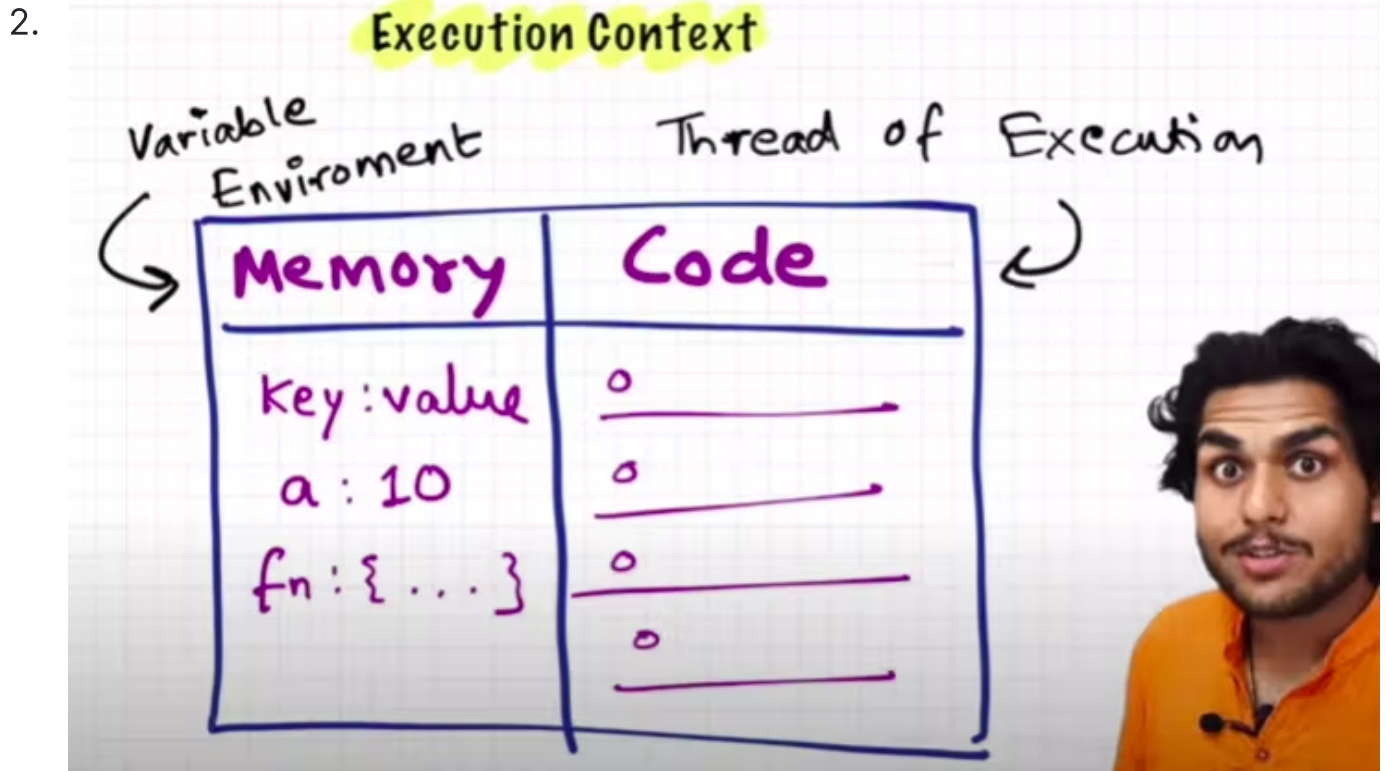 2.
Execution Context
Variable
Enviroment
Thread of Execution
Memory
Code
key:value
a : 10
fn : { ... }